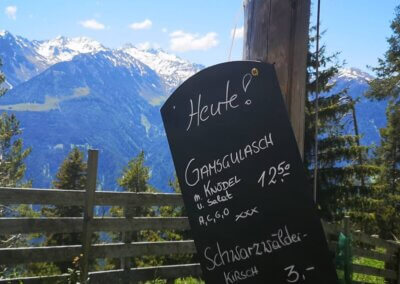 Heute!
GAMSGULASCH
m. KNÖDEL
u. Salat 12.50
A,C,G,O xxx
Schwarzwälder-
KIRSCH 3,-